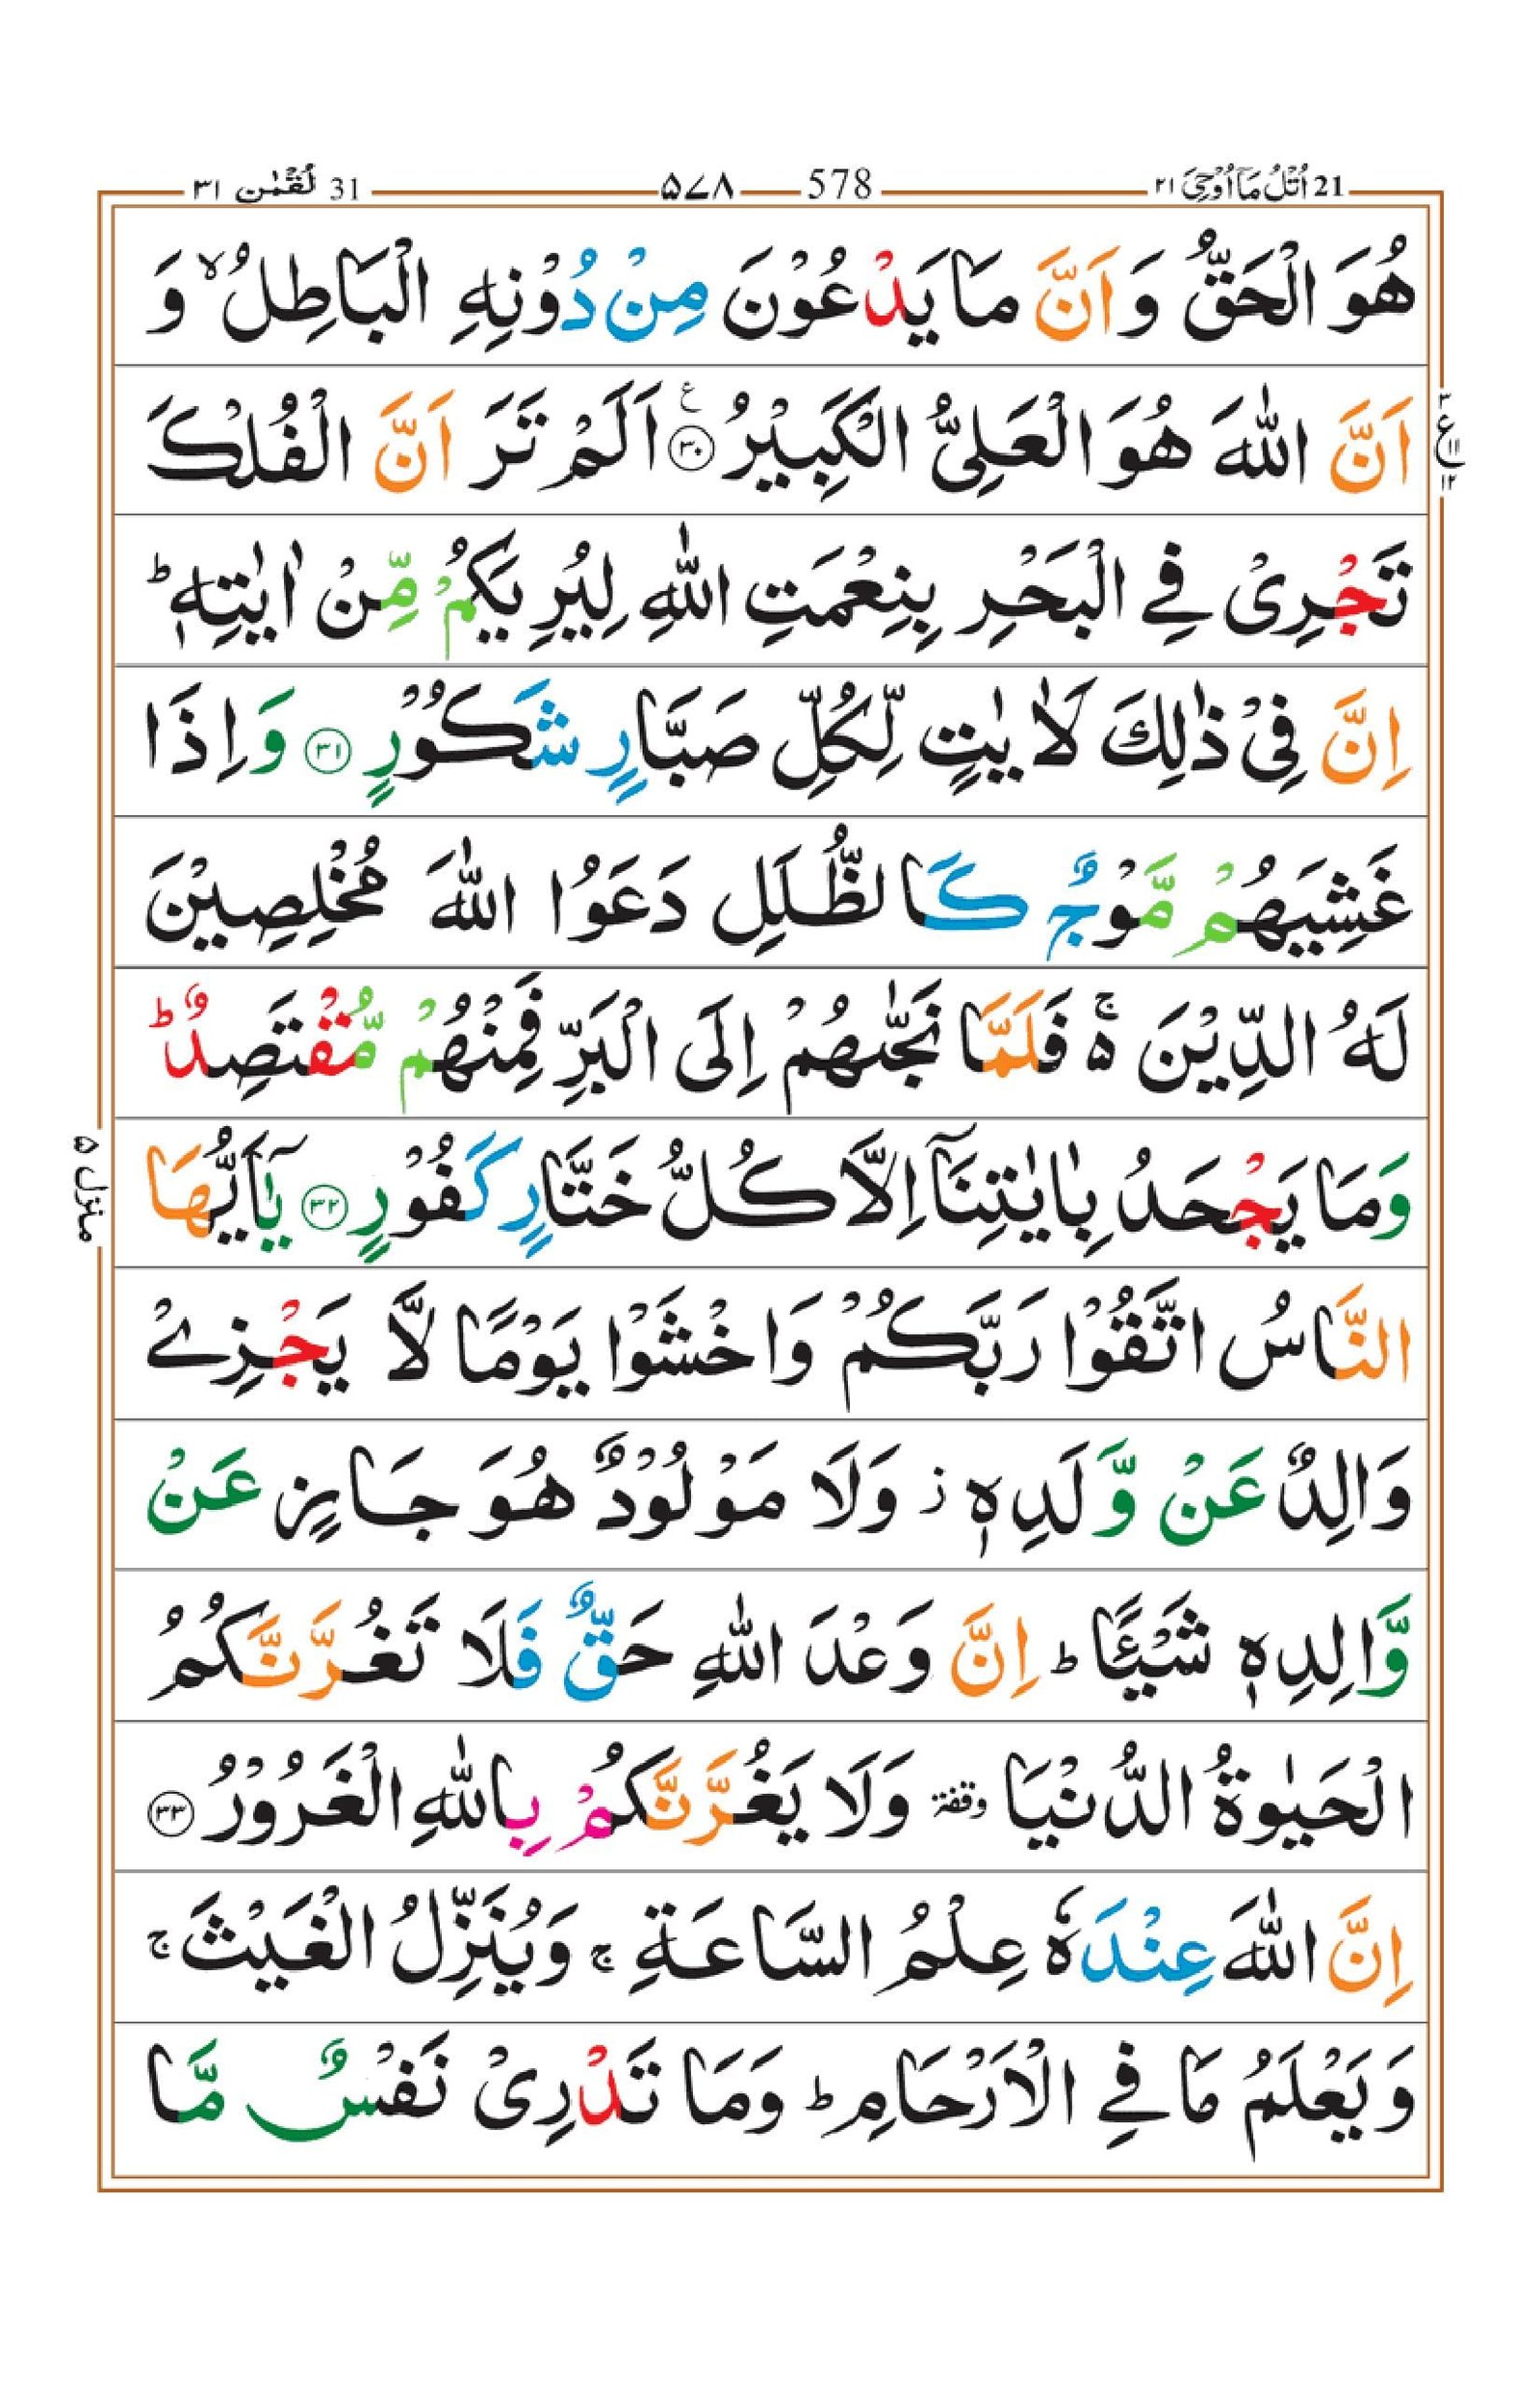 21 اُتْلُ مَاۤ اُوْحِیَ ۲۱
578 ۵۷۸
31 لُقْمٰن ۳۱
هُوَ الْحَقُّ وَ اَنَّ مَا یَدْعُوْنَ مِنْ دُوْنِهِ الْبَاطِلُ ۙ وَ
اَنَّ اللّٰهَ هُوَ الْعَلِیُّ الْكَبِیْرُ ۝۳۰ ع اَلَمْ تَرَ اَنَّ الْفُلْكَ
تَجْرِیْ فِی الْبَحْرِ بِنِعْمَتِ اللّٰهِ لِیُرِیَكُمْ مِّنْ اٰیٰتِهٖ ؕ
اِنَّ فِیْ ذٰلِكَ لَاٰیٰتٍ لِّكُلِّ صَبَّارٍ شَكُوْرٍ ۝۳۱ وَ اِذَا
غَشِیَهُمْ مَّوْجٌ كَالظُّلَلِ دَعَوُا اللّٰهَ مُخْلِصِیْنَ
لَهُ الدِّیْنَ ۵ۚ فَلَمَّا نَجّٰىهُمْ اِلَى الْبَرِّ فَمِنْهُمْ مُّقْتَصِدٌ ؕ
وَمَا یَجْحَدُ بِاٰیٰتِنَاۤ اِلَّا كُلُّ خَتَّارٍ كَفُوْرٍ ۝۳۲ یٰۤاَیُّهَا
النَّاسُ اتَّقُوْا رَبَّكُمْ وَاخْشَوْا یَوْمًا لَّا یَجْزِیْ
وَالِدٌ عَنْ وَّلَدِهٖ ز وَلَا مَوْلُوْدٌ هُوَ جَازٍ عَنْ
وَّالِدِهٖ شَیْـًٔا ؕ اِنَّ وَعْدَ اللّٰهِ حَقٌّ فَلَا تَغُرَّنَّكُمُ
الْحَیٰوةُ الدُّنْیَا وقفۃ وَلَا یَغُرَّنَّكُمْ بِاللّٰهِ الْغَرُوْرُ ۝۳۳
اِنَّ اللّٰهَ عِنْدَهٗ عِلْمُ السَّاعَةِ ج وَیُنَزِّلُ الْغَیْثَ ج
وَیَعْلَمُ مَا فِی الْاَرْحَامِ ؕ وَمَا تَدْرِیْ نَفْسٌ مَّا
۳ ع ۱۱ ۱۲
منزل ۵